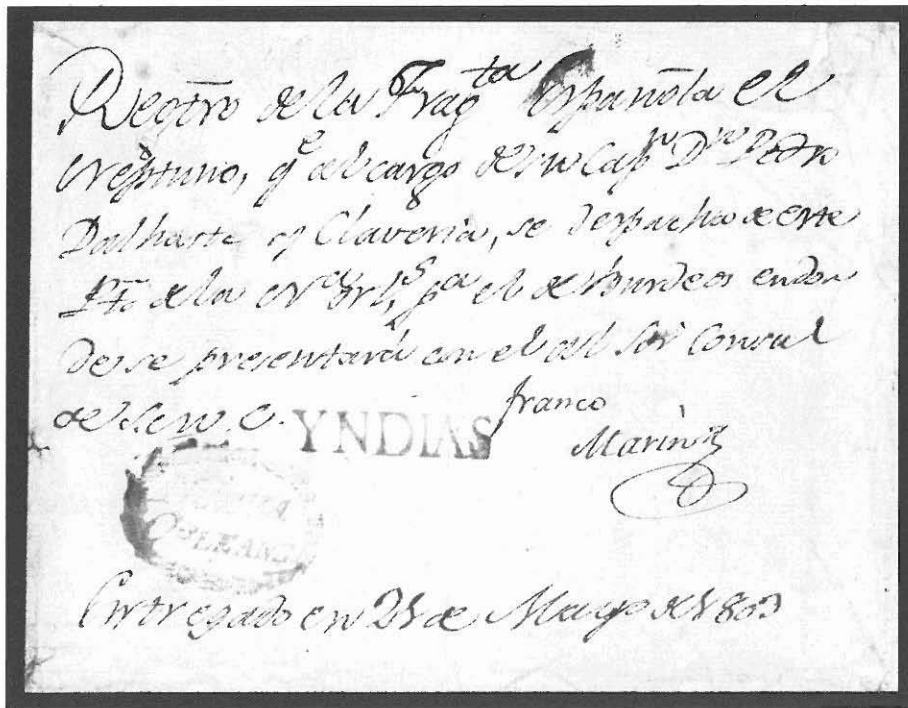 Regtro de la Fragta Española el
Neptuno, qe al cargo de su Capn Dn Pedro
Dalhaste y Claveria, se despacha de este
Pto de la Na Orls, pa el de Burdeos endon
de se presentará en el al Sor Consul
de S.M.C.
franco
YNDIAS
Marin
NUEVA
ORLEANS
Entregado en 21 de Mayo de 1803